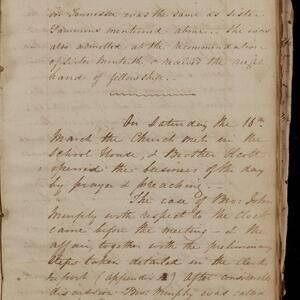 in Tennessee was the same as sister
Timmons mentioned above. She was
also admitted at the recommendation
of Sister Monteith & received the right
hand of fellowship.
On Saturday the 16th
March the Church met in the
School House, & Brother Scott
opened the business of the day
by prayer & preaching.
The case of Bro: John
Murphy with respect to the Clock
came before the meeting - & the
affair, together with the preliminary
steps taken detailed in the Clerk
report (appendix 2) After considerable
discussion Bro: Murphy was asked